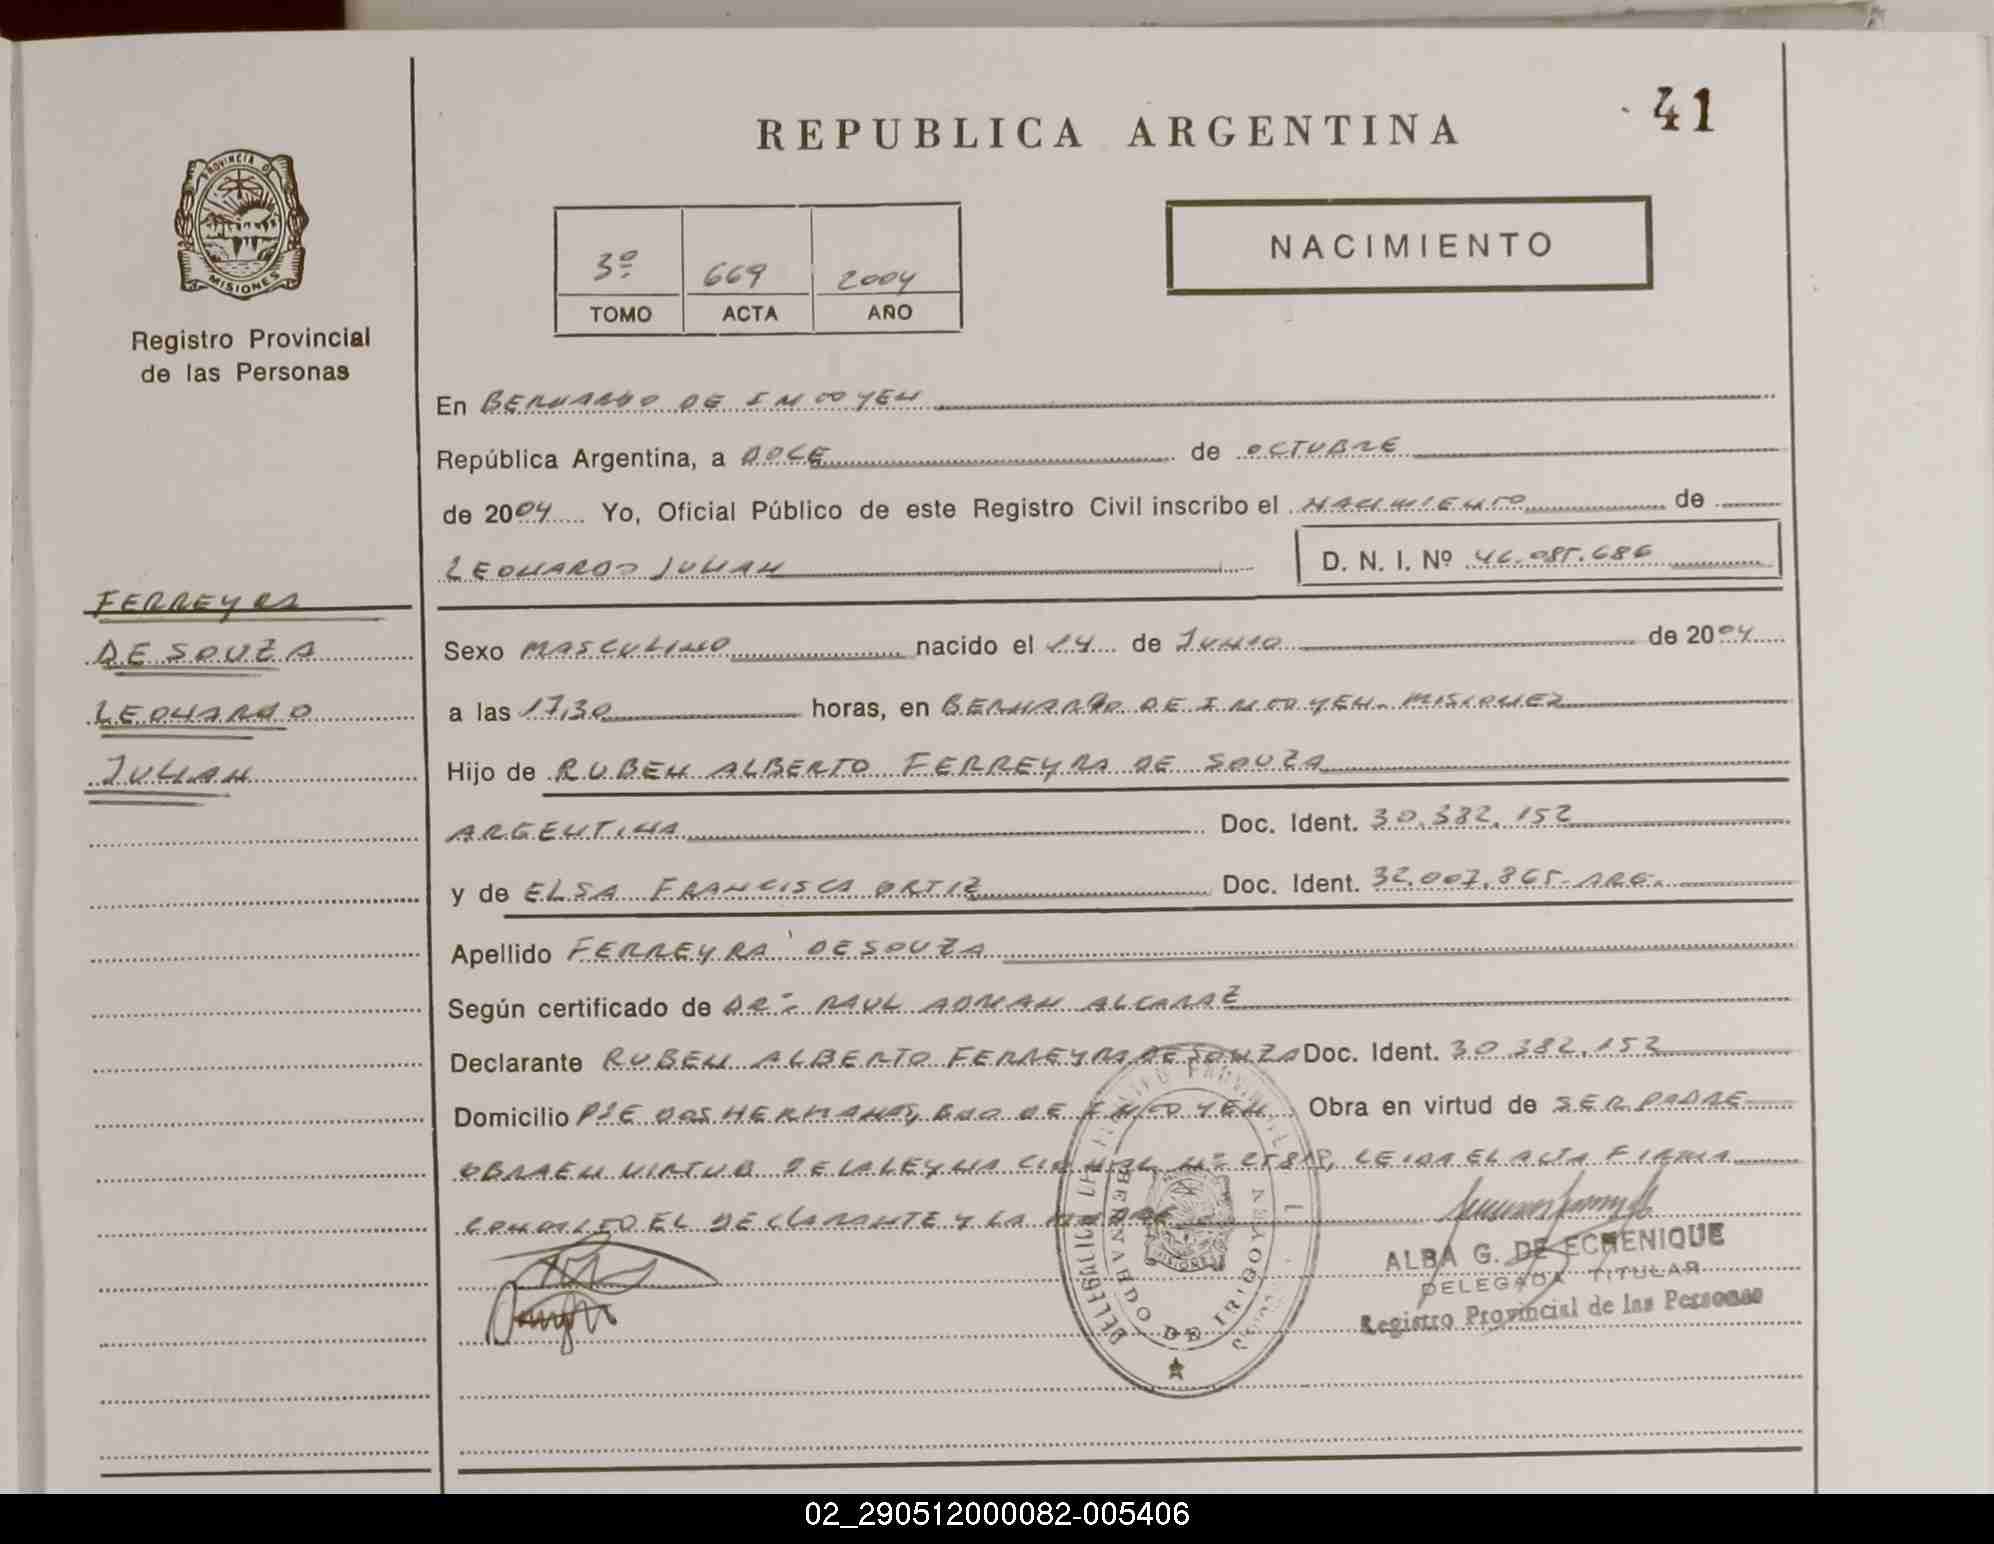 REPUBLICA ARGENTINA
41
PROVINCIA D
MISIONES
Registro Provincial
de las Personas
3º
669
2004
TOMO
ACTA
AÑO
NACIMIENTO
En BERNARDO DE IRIGOYEN
República Argentina, a DOCE de OCTUBRE
de 2004 Yo, Oficial Público de este Registro Civil inscribo el NACIMIENTO de
LEONARDO JULIAN D. N. I. Nº 46.085.686
FERREYRA
DE SOUZA
LEONARDO
JULIAN
Sexo MASCULINO nacido el 14 de JUNIO de 2004
a las 17,30 horas, en BERNARDO DE IRIGOYEN. MISIONES
Hijo de RUBEN ALBERTO FERREYRA DE SOUZA
ARGENTINA Doc. Ident. 30.382.152
y de ELSA FRANCISCA ORTIZ Doc. Ident. 32.007.865 ARG.
Apellido FERREYRA DE SOUZA
Según certificado de DR: RAUL ADRIAN ALCARAZ
Declarante RUBEN ALBERTO FERREYRA DE SOUZA Doc. Ident. 30.382.152
Domicilio PJE DOS HERMANAS, BDO DE IRIGOYEN Obra en virtud de SER PADRE
OBRA EN VIRTUD DE LA LEY NACIONAL Nº 25818, LEIDA EL ACTA FIRMA
CONMIGO EL DECLARANTE Y LA MADRE
BERNARDO DE IRIGOYEN
MISIONES
ALBA G. DE ECHENIQUE
DELEGADA TITULAR
Registro Provincial de las Personas
02_290512000082-005406